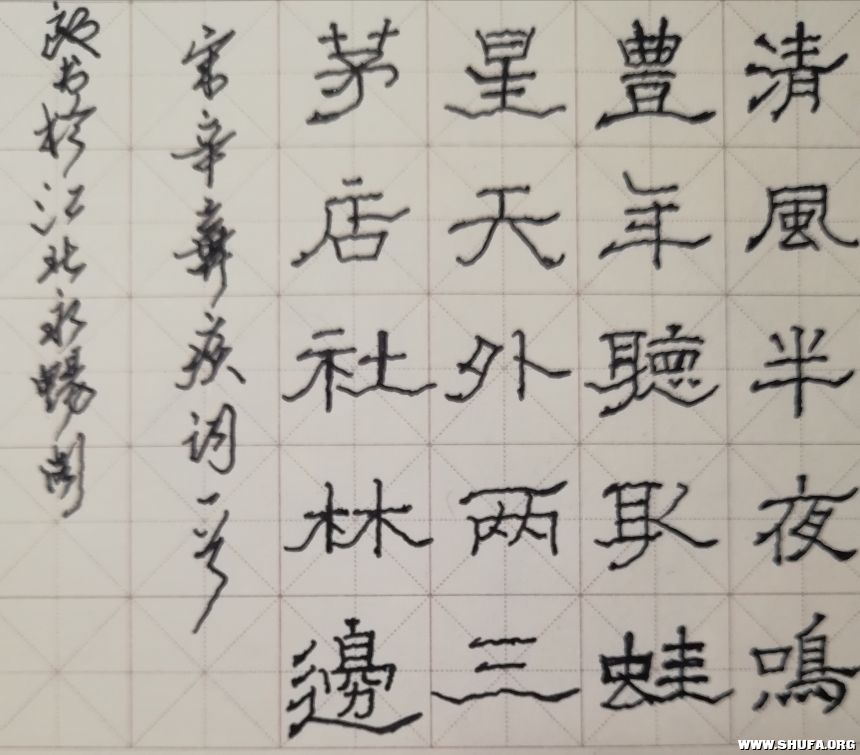 清風半夜鳴
豊年聽取蛙
星天外两三
茅店社林邊
宋辛棄疾词一首
书於江北永暢
WWW.SHUFA.ORG